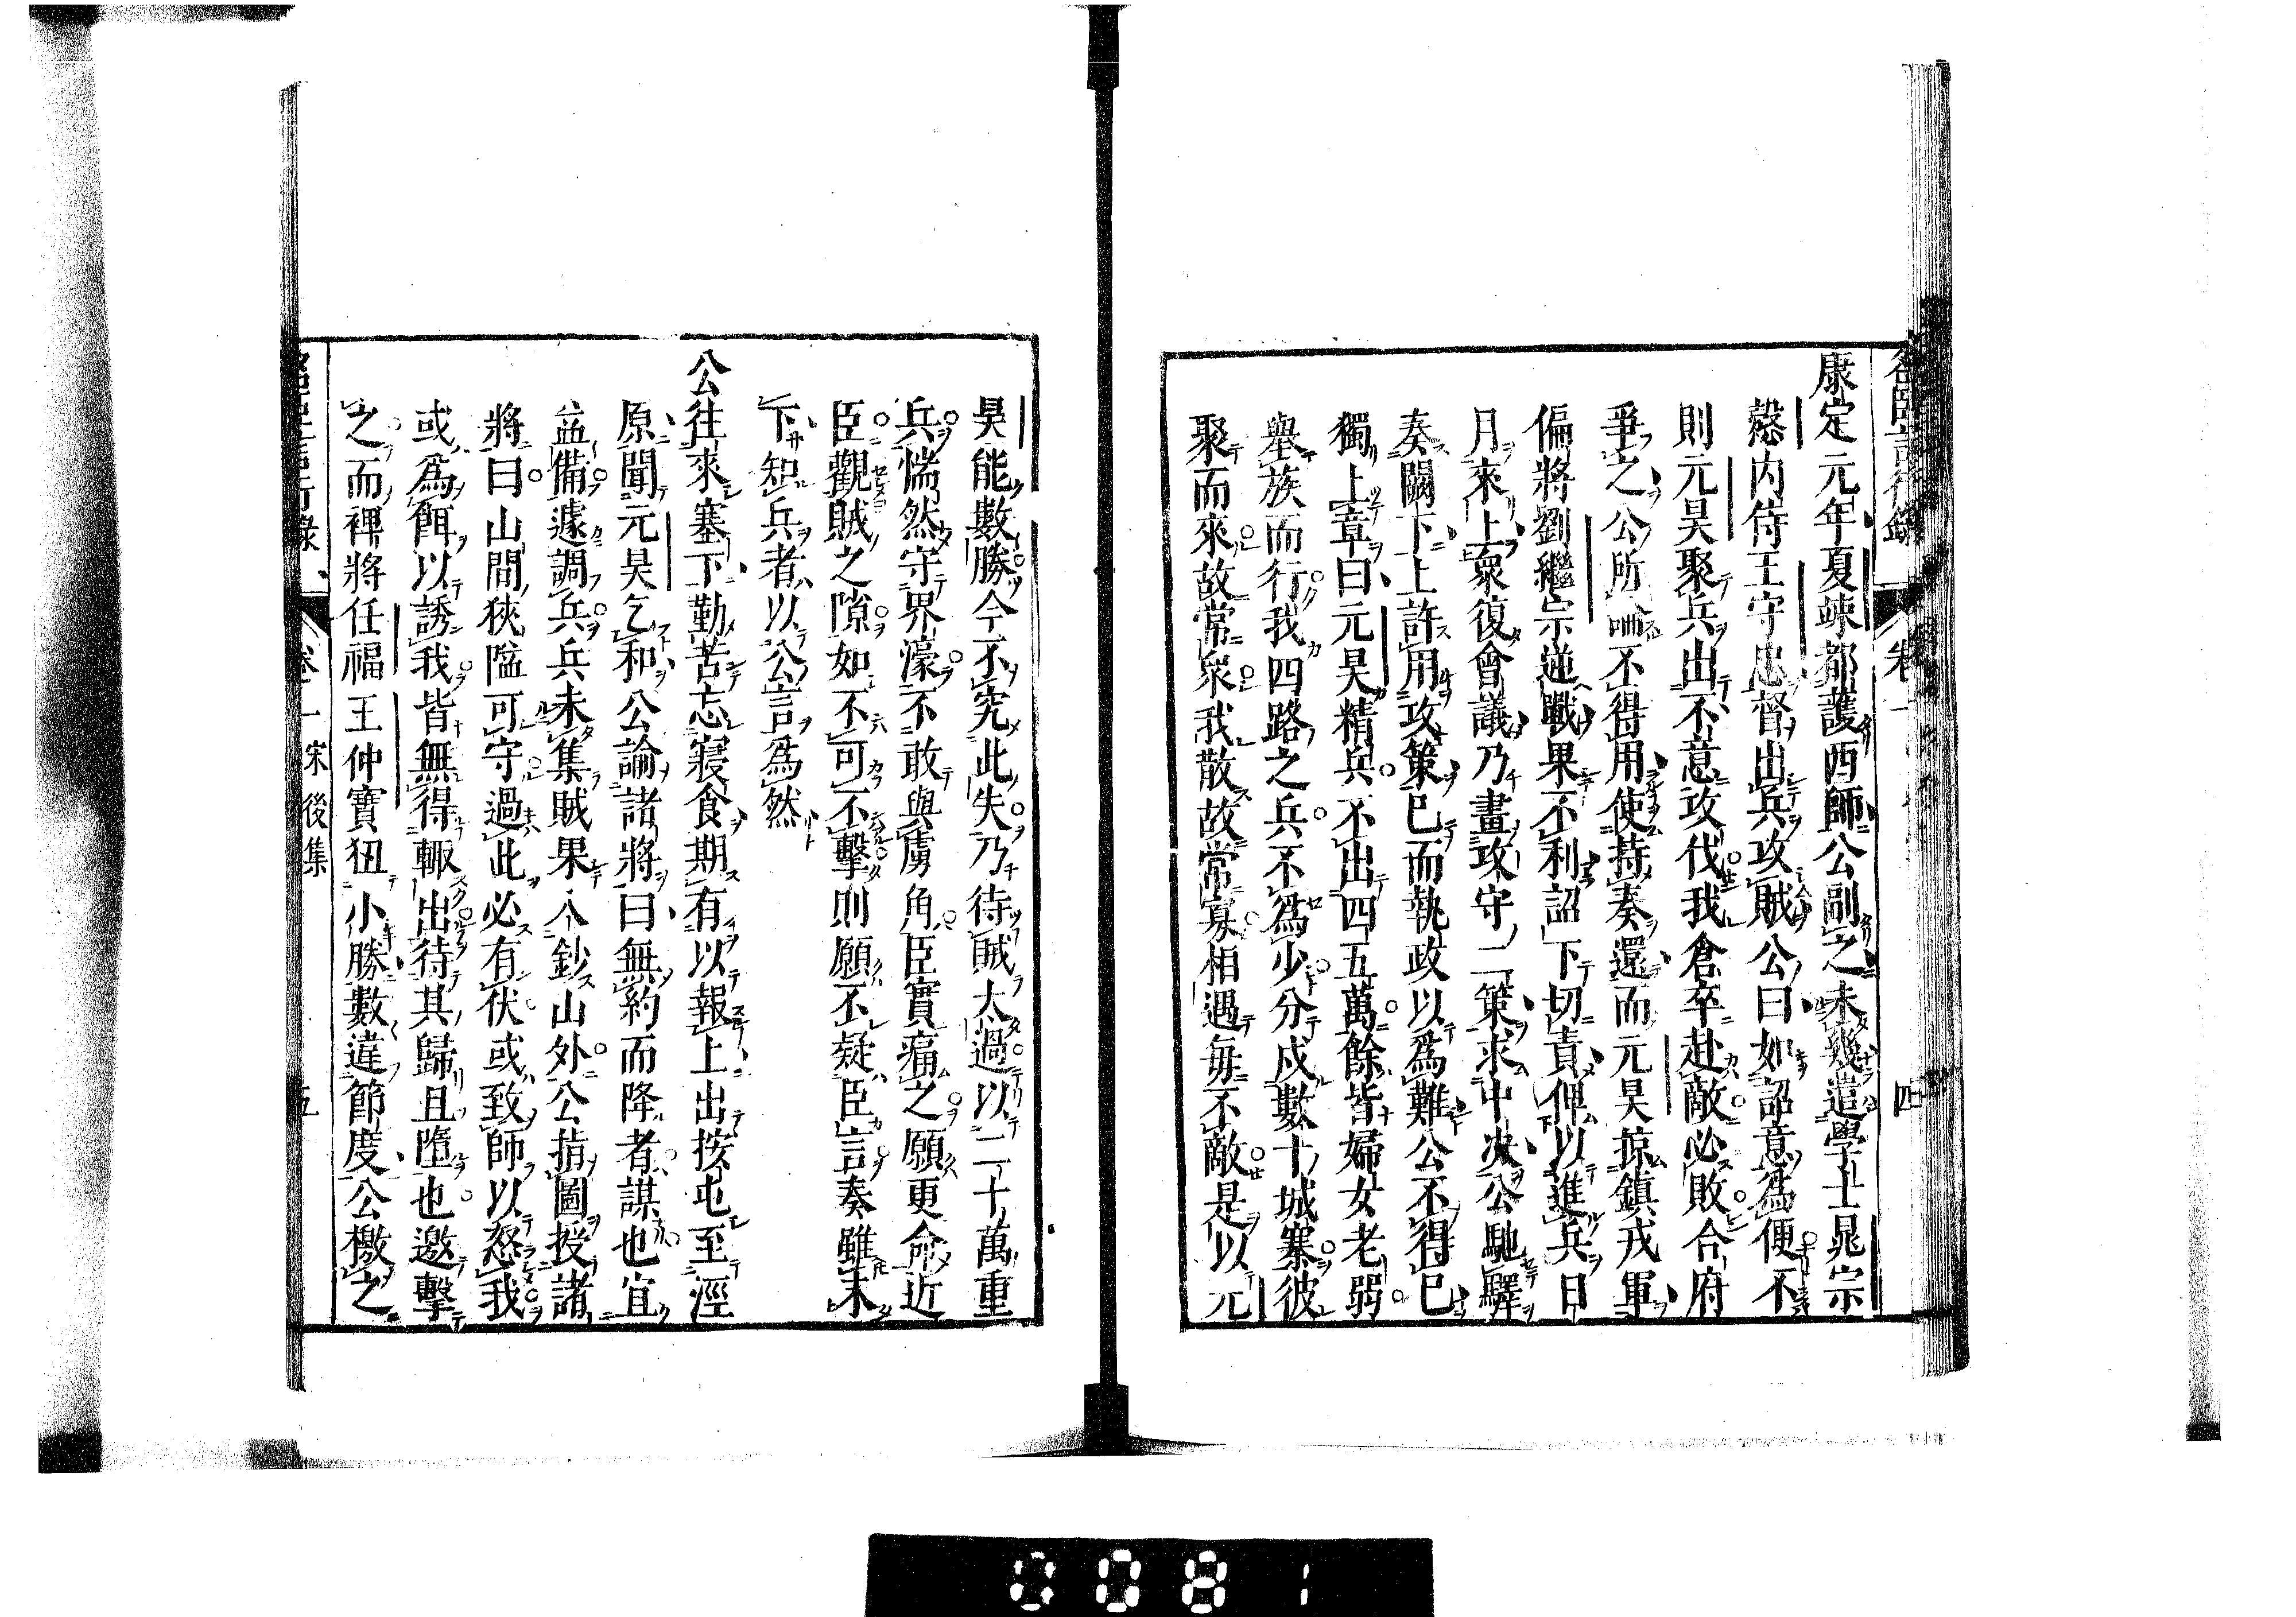 康定元年夏竦都護西師公副之未幾遣學士晁宗
慤内侍王守忠督出兵攻賊公曰如詔意爲便不
則元昊聚兵出不意攻伐我倉卒赴敵必敗合府
爭之公所啚不得用使持奏還而元昊掠鎮戎軍
偏將劉繼宗逆戰果不利詔下切責俾以進兵日
月來上衆復會議乃畫攻守二策求中决公馳驛
奏闕下上許用攻策已而執政以爲難公不得已
獨上章曰元昊精兵不出四五萬餘皆婦女老弱
舉族而行我四路之兵不爲少分戍數十城寨彼
聚而來故常衆我散故常寡相遇每不敵是以元
昊能數勝今不究此失乃待賊太過以二十萬重
兵惴然守界濠不敢與虜角臣實痛之願更命近
臣觀賊之隙如不可不擊則願不疑臣言奏雖未
下知兵者以公言爲然
公往來塞下勤苦忘寢食期有以報上出按屯至涇
原聞元昊乞和公諭諸將曰無約而降者謀也宜
益備遽調兵兵未集賊果入鈔山外公指圖授諸
將曰山間狹隘可守過此必有伏或致師以怒我
或爲餌以誘我皆無得輒出待其歸且墮也邀擊
之而裨將任福王仲寶狃小勝數違節度公檄之
卷一 宋後集 五
0081